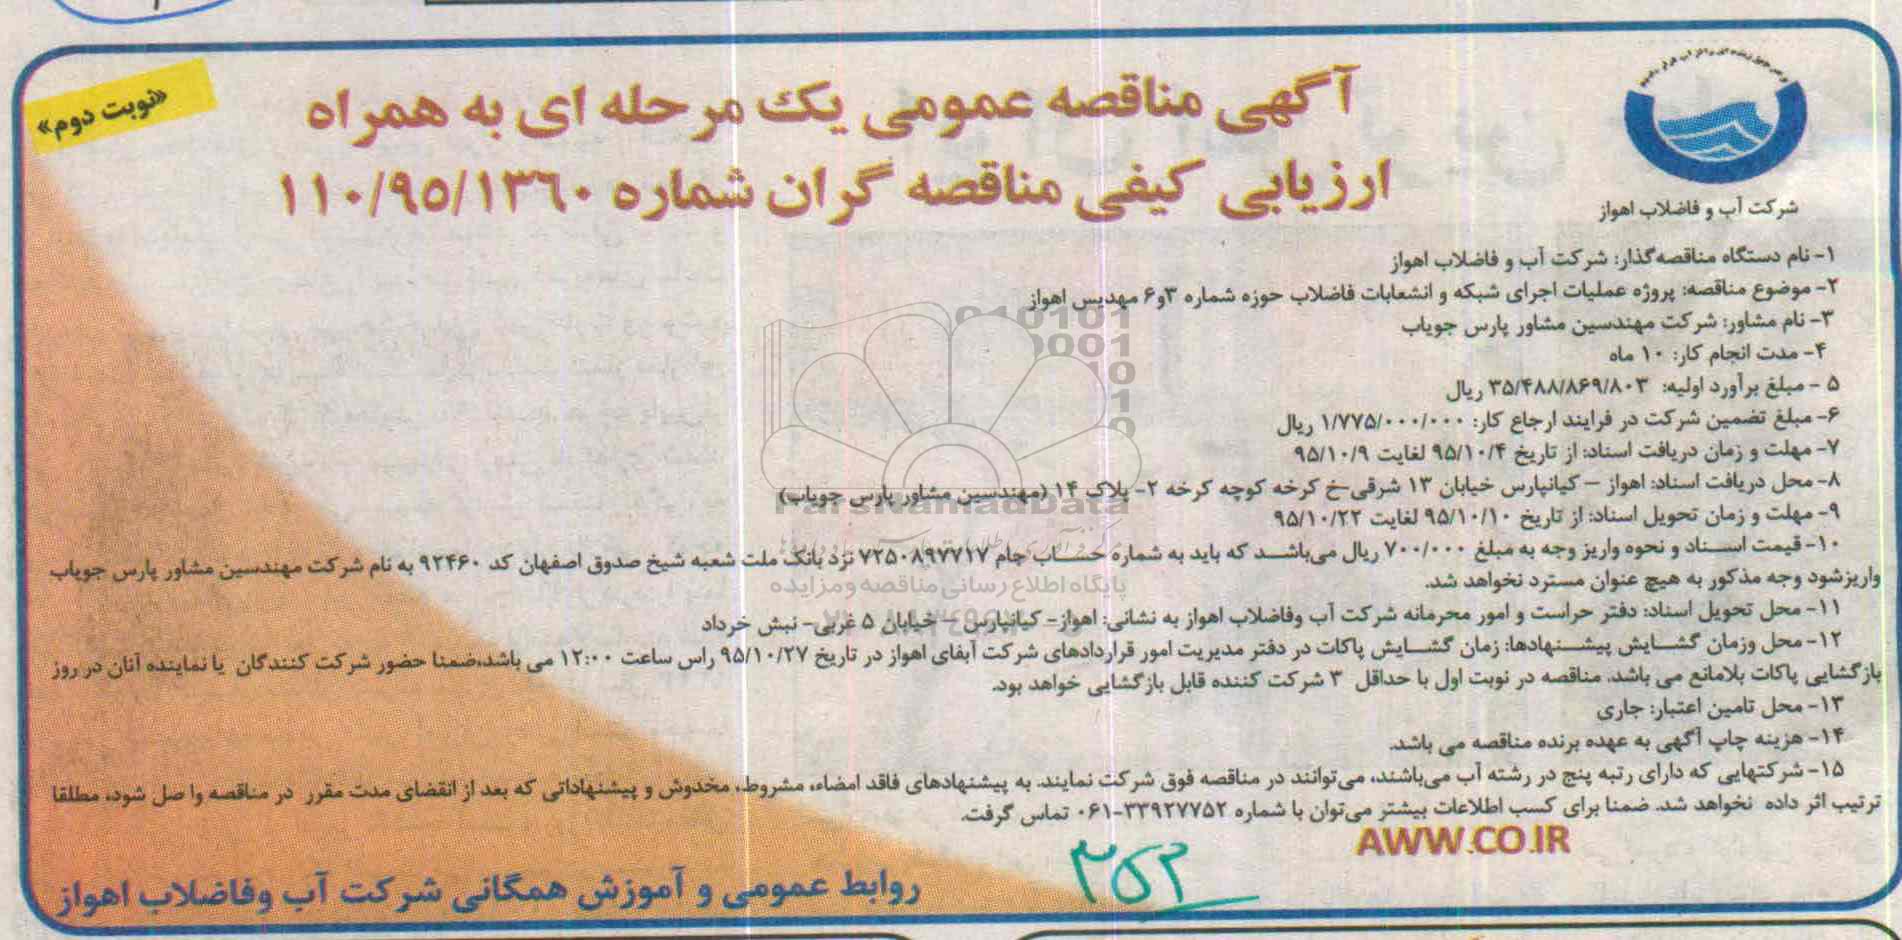 «نوبت دوم»
آگهی مناقصه عمومی یک مرحله ای به همراه
ارزیابی کیفی مناقصه گران شماره ۱۱۰/۹۵/۱۳۶۰
شرکت آب و فاضلاب اهواز
۱- نام دستگاه مناقصه‌گذار: شرکت آب و فاضلاب اهواز
۲- موضوع مناقصه: پروژه عملیات اجرای شبکه و انشعابات فاضلاب حوزه شماره ۳و۶ مهدیس اهواز
۳- نام مشاور: شرکت مهندسین مشاور پارس جویاب
۴- مدت انجام کار: ۱۰ ماه
۵ - مبلغ برآورد اولیه: ۳۵/۴۸۸/۸۶۹/۸۰۳ ریال
۶- مبلغ تضمین شرکت در فرایند ارجاع کار: ۱/۷۷۵/۰۰۰/۰۰۰ ریال
۷- مهلت و زمان دریافت اسناد: از تاریخ ۹۵/۱۰/۴ لغایت ۹۵/۱۰/۹
۸- محل دریافت اسناد: اهواز – کیانپارس خیابان ۱۳ شرقی-خ کرخه کوچه کرخه ۲- پلاک ۱۴ (مهندسین مشاور پارس جویاب)
۹- مهلت و زمان تحویل اسناد: از تاریخ ۹۵/۱۰/۱۰ لغایت ۹۵/۱۰/۲۲
۱۰- قیمت اسناد و نحوه واریز وجه به مبلغ ۷۰۰/۰۰۰ ریال می‌باشد که باید به شماره حساب جام ۷۲۵۰۸۹۷۷۱۷ نزد بانک ملت شعبه شیخ صدوق اصفهان کد ۹۲۴۶۰ به نام شرکت مهندسین مشاور پارس جویاب
واریزشود وجه مذکور به هیچ عنوان مسترد نخواهد شد.
۱۱- محل تحویل اسناد: دفتر حراست و امور محرمانه شرکت آب وفاضلاب اهواز به نشانی: اهواز- کیانپارس – خیابان ۵ غربی- نبش خرداد
۱۲- محل وزمان گشایش پیشنهادها: زمان گشایش پاکات در دفتر مدیریت امور قراردادهای شرکت آبفای اهواز در تاریخ ۹۵/۱۰/۲۷ راس ساعت ۱۲:۰۰ می باشد،ضمنا حضور شرکت کنندگان یا نماینده آنان در روز
بازگشایی پاکات بلامانع می باشد. مناقصه در نوبت اول با حداقل ۳ شرکت کننده قابل بازگشایی خواهد بود.
۱۳- محل تامین اعتبار: جاری
۱۴- هزینه چاپ آگهی به عهده برنده مناقصه می باشد.
۱۵- شرکتهایی که دارای رتبه پنج در رشته آب می‌باشند، می‌توانند در مناقصه فوق شرکت نمایند. به پیشنهادهای فاقد امضاء، مشروط، مخدوش و پیشنهاداتی که بعد از انقضای مدت مقرر در مناقصه وا صل شود، مطلقا
ترتیب اثر داده نخواهد شد. ضمنا برای کسب اطلاعات بیشتر می‌توان با شماره ۳۳۹۲۷۷۵۲-۰۶۱ تماس گرفت.
AWW.CO.IR
روابط عمومی و آموزش همگانی شرکت آب وفاضلاب اهواز
ParsNamadData
پایگاه اطلاع رسانی مناقصه ومزایده